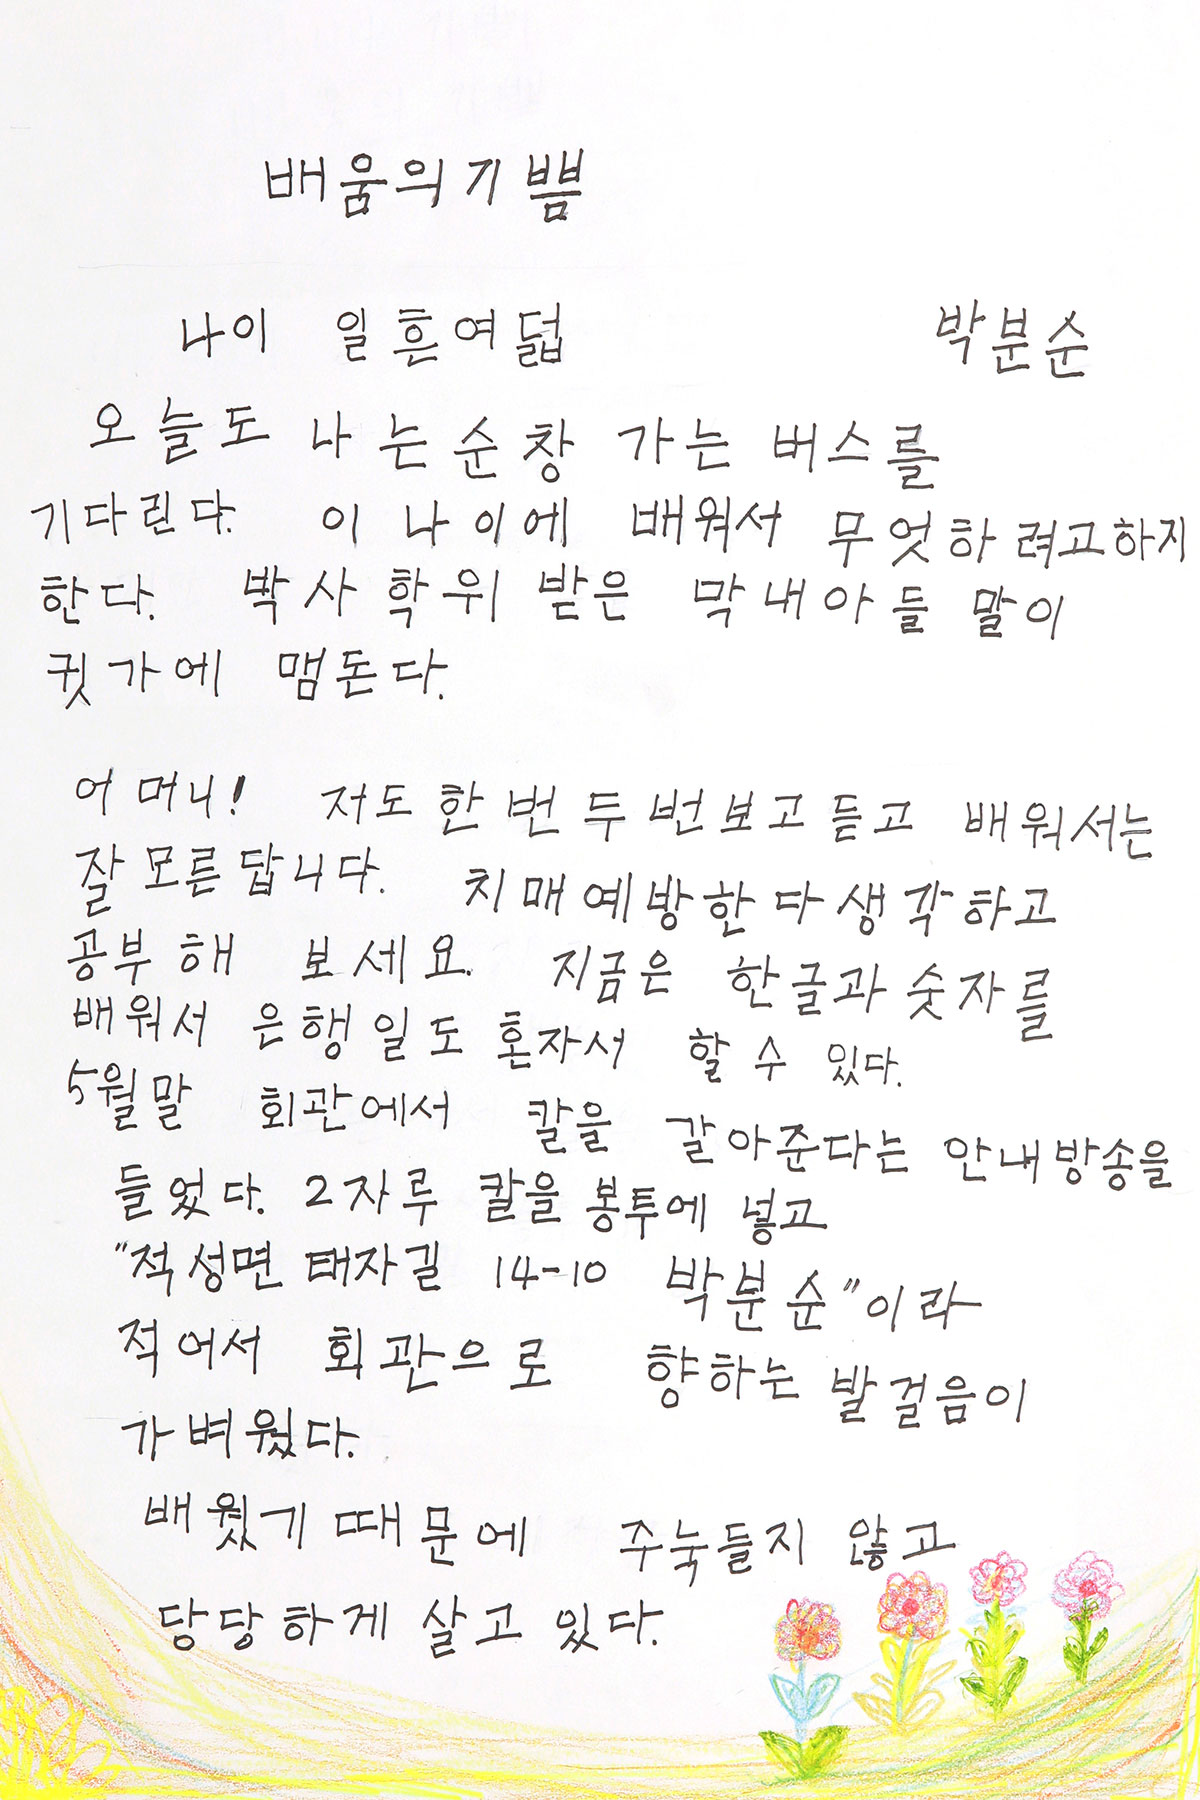 배움의기쁨
나이 일흔여덟 박분순
오늘도 나는순창 가는 버스를
기다린다. 이 나이에 배워서 무엇하려고하지
한다. 박사학위 받은 막내아들 말이
귓가에 맴돈다.
어머니! 저도한번두번보고듣고 배워서는
잘모른답니다. 치매예방한다생각하고
공부해 보세요. 지금은 한글과숫자를
배워서 은행일도 혼자서 할 수 있다.
5월말 회관에서 칼을 갈아준다는 안내방송을
들었다. 2자루 칼을 봉투에 넣고
"적성면 태자길 14-10 박분순"이라
적어서 회관으로 향하는 발걸음이
가벼웠다.
배웠기때문에 주눅들지 않고
당당하게 살고 있다.